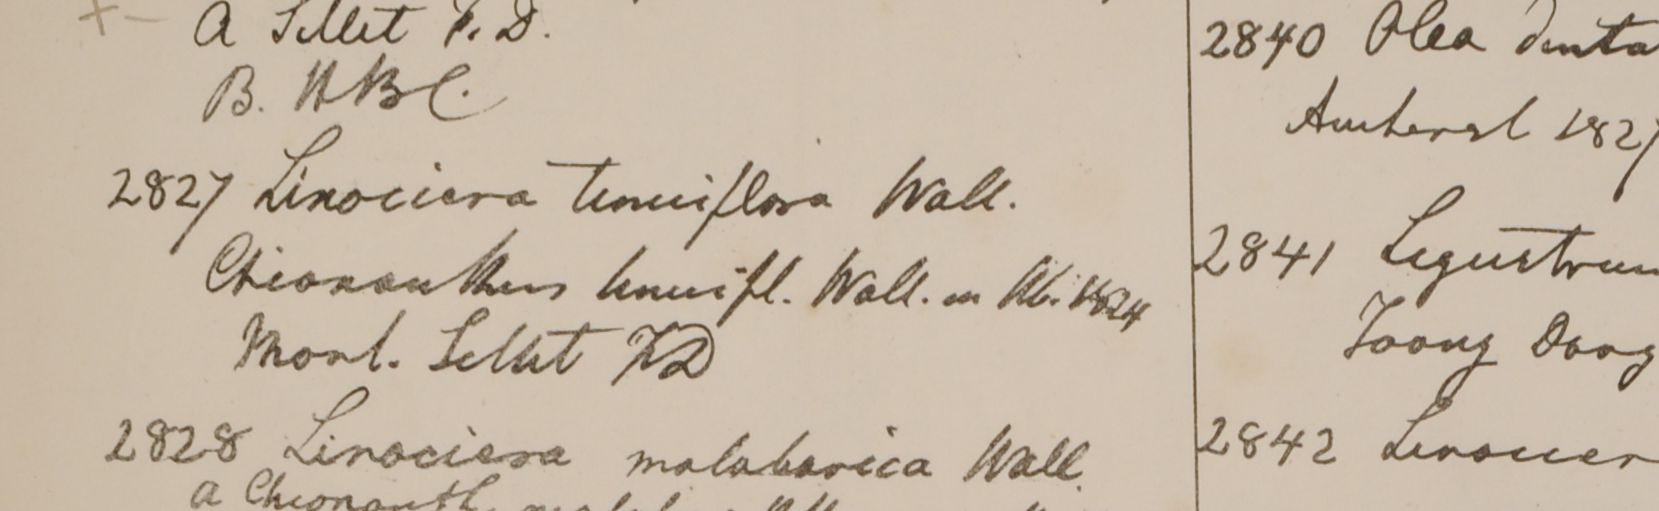 A Sillet F. D.
B. HBC.
2827 Linociera tenuiflora Wall.
Chionanthus tenuifl. Wall. in 1824
Mont. Sillet FD
2828 Linociera malabarica Wall.
a Chionanth.
2840 Olea denta
Amherst 1827
2841 Ligustrum
Toong Doong
2842 Linocier